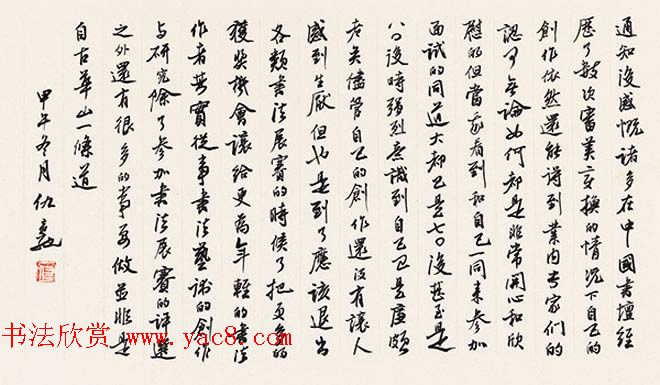 通知後感慨諸多在中國書壇經
歷了數次審美変換的情況下自己的
創作依然還能得到業内专家們的
認可無論如何都是非常開心和欣
慰的但當我看到和自己一同来參加
面試的同道大都已是七〇後甚至是
八〇後時强烈意識到自己已是廉頗
老矣儘管自己的創作還沒有讓人
感到生厭但也是到了應該退出
各類書法展賽的時候了把更多的
獲奬機會讓給更為年輕的書法
作者其實從事書法藝術的創作
与研究除了參加書法展賽的評選
之外還有很多的事要做並非是
自古華山一條道
甲午冬月仇
书法欣赏 www.yac8.com